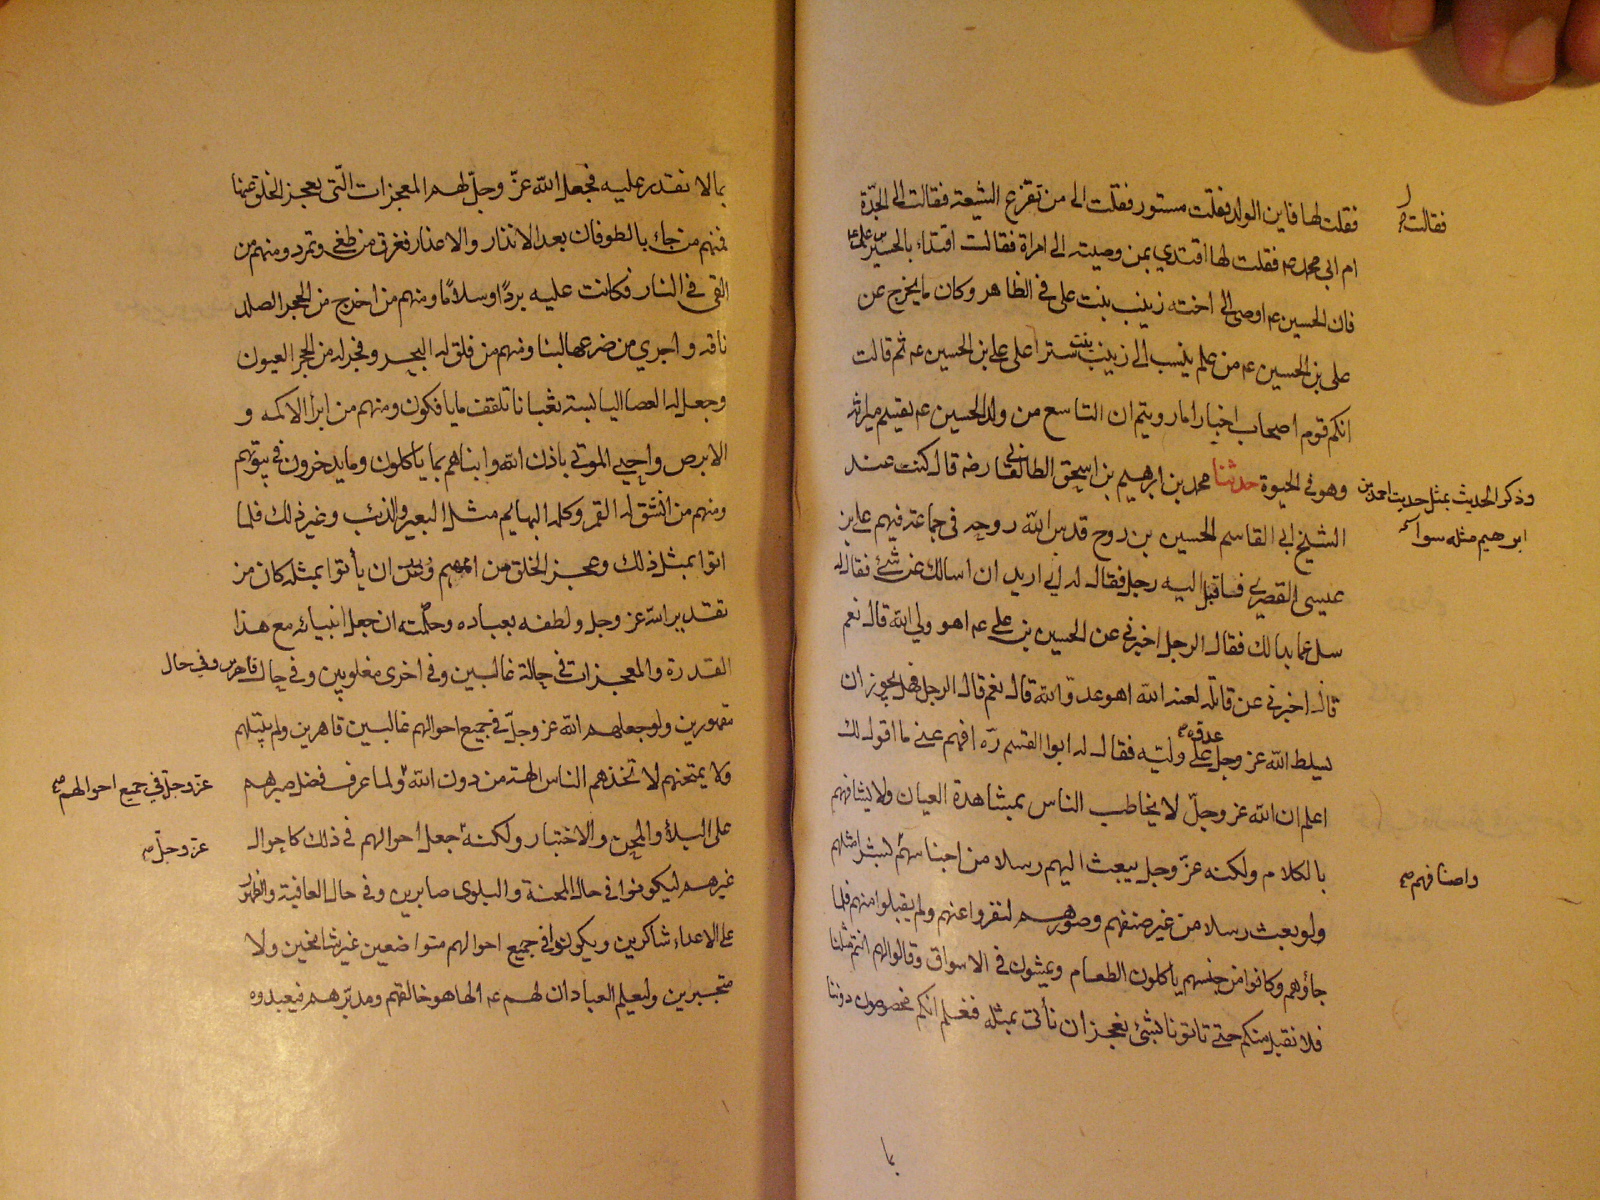 فقلت لها فاين الولد فقلت مستور فقلت الى من تفزع الشيعة فقالت الى الجدّة
فقالت
ام ابى محمد ع فقلت لها اقتدي بمن وصيته الى امراة فقالت اقتداء بالحسين بن على ع
فان الحسين ع اوصى الى اخته زينب بنت على فى الظاهر وكان ما يخرج عن
على بن الحسين ع من علم ينسب الى زينب بنت سترا على على بن الحسين ع ثم قالت
انكم قوم اصحاب اخبار اما رويتم ان التاسع من ولد الحسين ع يقسم ميراثه
وهو فى الحيوة حدثنا محمد بن ابرهيم بن اسحق الطالقانى رضه قال كنت عند
وذكر الحديث بمثل حديث احمد بن
ابرهيم مثله سواء
الشيخ ابى القاسم الحسين بن روح قدس الله روحه فى جماعة فيهم على بن
عيسى القصرى فاقبل اليه رجل فقال له انى اريد ان اسالك عن شئ فقال له
سل عما بدا لك فقال الرجل اخبرنى عن الحسين بن على ع اهو ولى الله قال نعم
قال اخبرنى عن قاتله لعنه الله اهو عدو الله قال نعم قال الرجل فهل يجوز ان
يسلط الله عز وجل عدوه على وليّه فقال له ابوا القسم ره افهم عنى ما اقول لك
اعلم ان الله عز وجلّ لا يخاطب الناس بمشاهدة العيان ولا يشافههم
بالكلام ولكنه عزّ وجل يبعث اليهم رسلا من اجناسهم بشر امثلهم
واصنافهم
ولو بعث رسلا من غير صنفهم وصورهم لنفروا عنهم ولم يقبلوا منهم فلما
جاؤهم وكانوا من جنسهم ياكلون الطعام ويمشون فى الاسواق وقالوا لهم انتم مثلنا
فلا نقبل منكم حتى تاتونا بشئ نعجز ان نأتى بمثله فنعلم انكم مخصوصون دوننا
بما لا نقدر عليه فجعل الله عزّ وجلّ لهم المعجزات التّى يعجز الخلق عنها
فمنهم من جاء بالطوفان بعد الانذار والاعذار فغرق من طغى وتمرد ومنهم من
القى فى النار فكانت عليه بردًا وسلامًا ومنهم من اخرج من الحجر الصلد
ناقه واجرى من ضرعها لبنا ومنهم من فلق له البحر وفجر له من الحجر العيون
وجعل له العصا اليابسة ثعبانا تلقف ما يافكون ومنهم من ابرأ الاكمه و
الابرص واحيى الموتى باذن الله وانباهم بما ياكلون وما يدخرون فى بيوتهم
ومنهم من انشق له القمر وكلمه البهايم مثل البعير والذئب وغير ذلك فلما
اتوا بمثل ذلك وعجز الخلق من اممهم عن ان يأتوا بمثله كان من
تقدير الله عز وجل ولطفه بعباده وحكمته ان جعل انبيائه مع هذا
القدرة والمعجزات فى حالة غالبين وفى اخرى مغلوبين وفى حال قاهرين وفى حال
مقهورين ولو جعلهم الله عز وجلّ فى جميع احوالهم غالبين قاهرين ولم يبتلهم
ولم يمتحنهم لاتخذهم الناس الهة من دون الله ولما عرف فضل صبرهم
عز وجلّ فى جميع احوالهم
على البلاء والمحن والاختبار ولكنه جعل احوالهم فى ذلك كاحوال
عز وجلّ
غيرهم ليكونوا فى حال المحنة والبلوى صابرين وفى حال العافية والظهور
على الاعداء شاكرين ويكونوا فى جميع احوالهم متواضعين غير شامخين ولا
متجبرين وليعلم العباد ان لهم ع الها هو خالقهم ومدبّرهم فيعبدوه